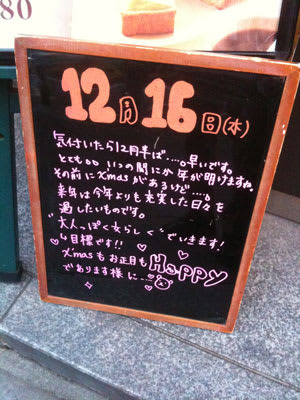 80
12月16日(水)
気付いたら12月半ば……。早いです。
とともoo いつの間にか年が明けますね。
その前にXmasがあるけど……。
来年は今年よりも充実した日々を
過したいものです。
"大人っぽく女らしく"でいきます!
目標です!!
Xmasもお正月もHappy
であります様に…